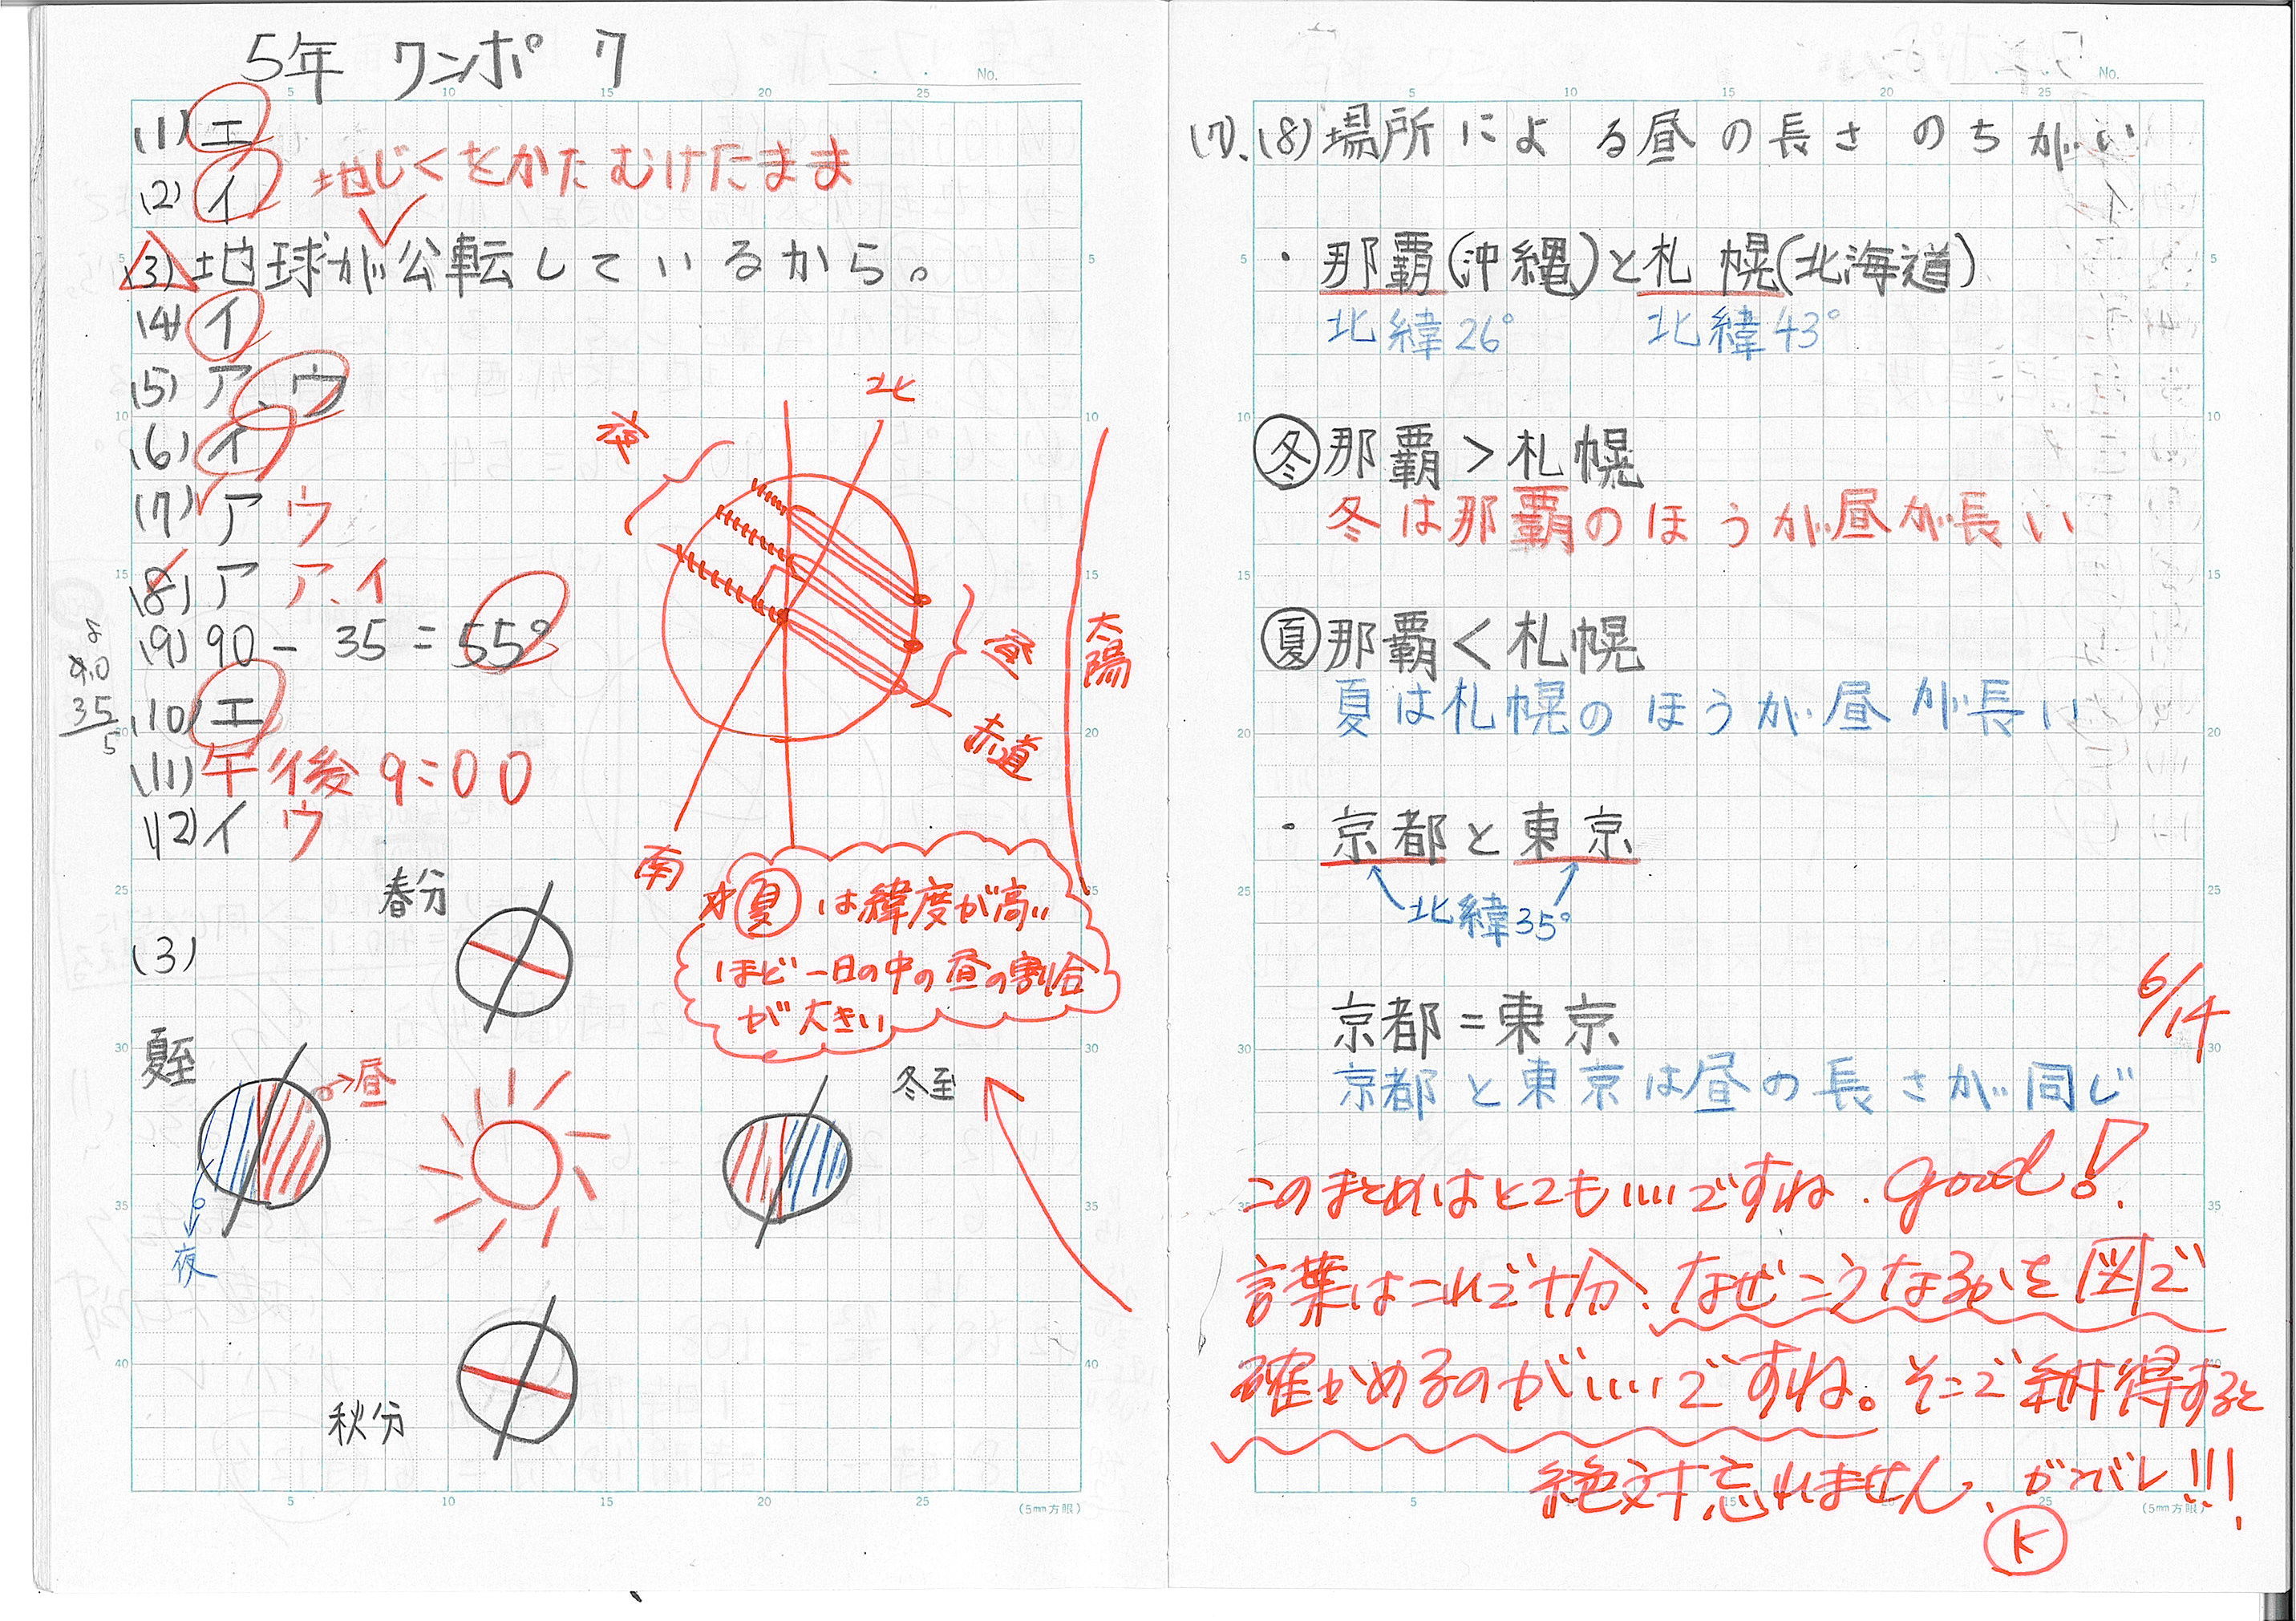 5年 ワンポ 7
No.
(1) エ
地じくをかたむけたまま
(2) イ
(3) 地球が公転しているから。
(4) イ
(5) ア、ウ
(6) イ
(7) ア ウ
(8) ア ア、イ
(9) 90 - 35 = 55°
(10) エ
(11) 午後9:00
(12) イ ウ
北
夜
昼
太陽
赤道
南
夏は緯度が高い
ほど一日の中の昼の割合
が大きい
(3)
春分
夏至
昼
夜
冬至
秋分
(5mm方眼)
No.
(7)、(8) 場所による昼の長さのちがい
・那覇(沖縄)と札幌(北海道)
北緯26° 北緯43°
冬 那覇 > 札幌
冬は那覇のほうが昼が長い
夏 那覇 < 札幌
夏は札幌のほうが昼が長い
・京都と東京
北緯35°
6/14
京都 = 東京
京都と東京は昼の長さが同じ
このまとめはとてもいいですね. good!
言葉はこれで十分. なぜこうなるかを図で
確かめるのがいいですね。そこで納得すると
絶対忘れません. ガンバレ!!!
K
(5mm方眼)